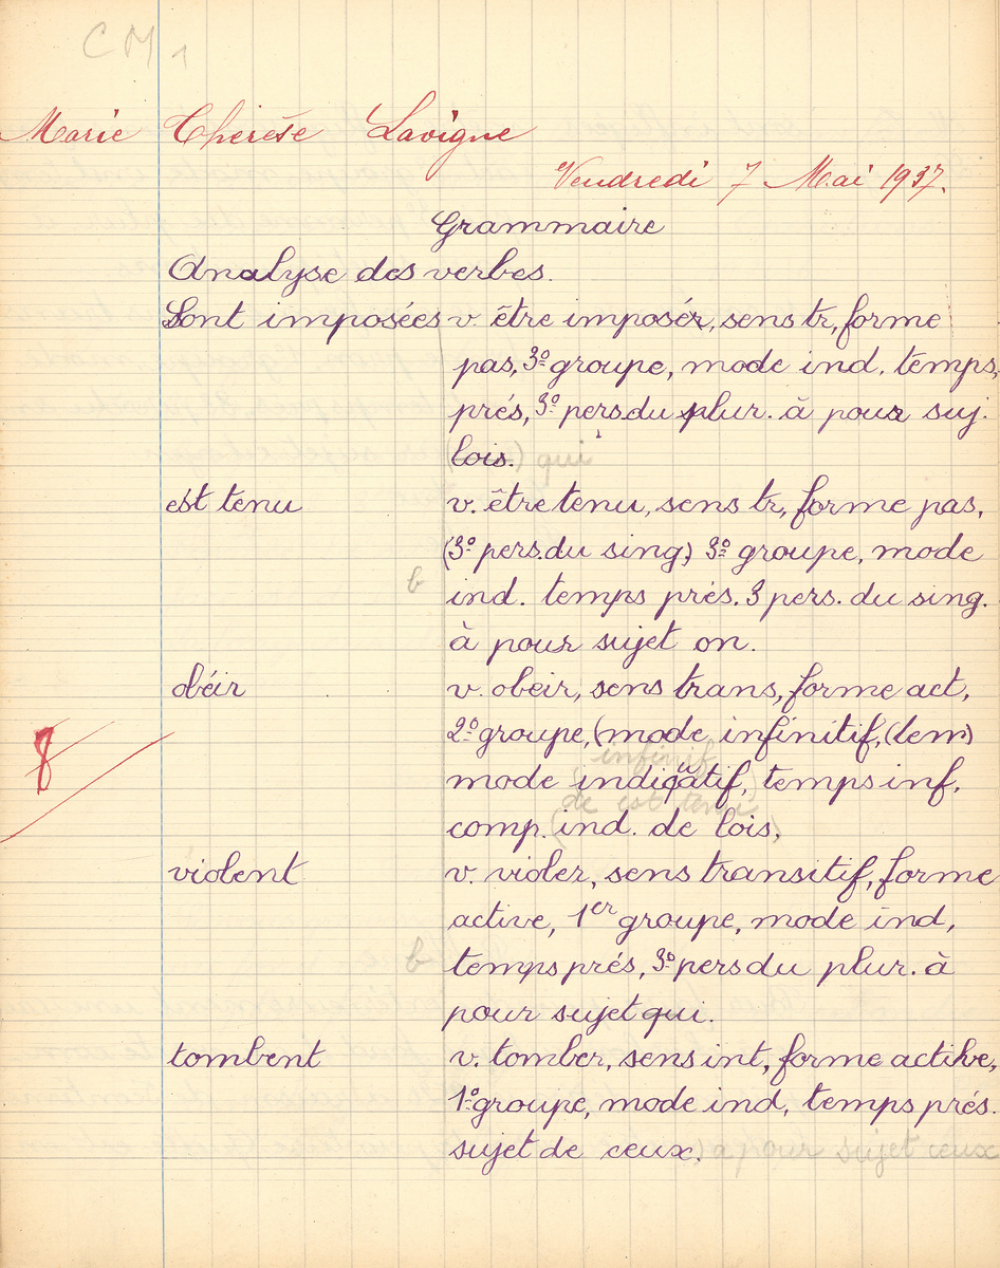 CM1
Marie Thérèse Lavigne
Vendredi 7 Mai 1937.
Grammaire
Analyse des verbes.
Sont imposées v. être imposér, sens tr, forme
pas, 3º groupe, mode ind. temps,
prés, 3º pers. du plur. à pour suj.
lois. ) qui
ést tenu v. être tenu, sens tr, forme pas,
(3º pers. du sing) 3º groupe, mode
b ind. temps prés. 3 pers. du sing.
à pour sujet on.
obéir v. obeir, sens trans, forme act,
8 2º groupe, (mode infinitif, (tem)
infinif
mode indicatif, temps inf,
de est tenu
comp. ind. de lois,
violent v. violer, sens transitif, forme
active, 1er groupe, mode ind,
b temps prés, 3º pers du plur. à
pour sujet qui.
tombent v. tomber, sens int, forme active,
1º groupe, mode ind, temps prés.
sujet de ceux. ) a pour sujet ceux